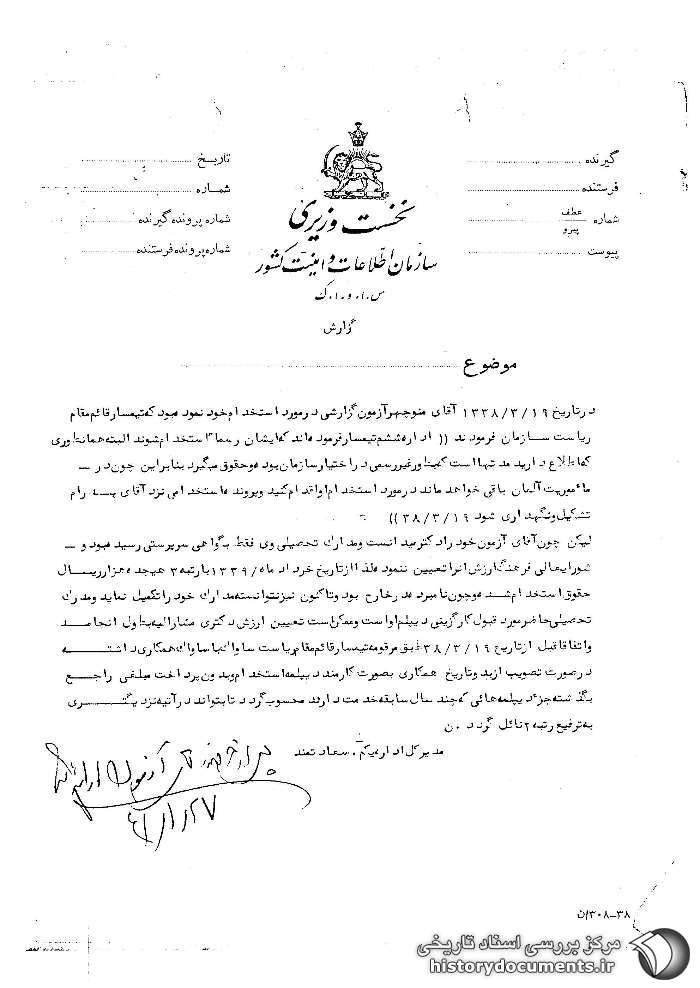 گیرنده
فرستنده
شماره عطف
پیرو
پیوست
تاریخ
شماره
شماره پرونده گیرنده
شماره پرونده فرستنده
نخست وزیری
سازمان اطلاعات و امنیت کشور
س.ا.و.ا.ک
گزارش
موضوع
درتاریخ ۱۳۳۸/۳/۱۹ آقای منوچهر آزمون گزارشی در مورد استخدام خود نمود هبود که تیمسار قائم مقام
ریاست سازمان فرمودند (( اداره ششم تیمسار فرموده اند که ایشان رسما استخدام شوند البته همانطوری
که اطلاع دارید مدتها است که بطور غیر رسمی در اختیار سازمان بوده و حقوق میگیرد بنابراین چون در ـ
مأموریت آلمان باقی خواهد ماند در مورد استخدام او اقدام کنید و پرونده استخدامی نزد آقای بهرام
تشکیل و نگهداری شود ۳۸/۳/۱۹))
لیکن چون آقای آزمون خود را دکتر میدانست و مدارک تحصیلی وی فقط بگواهی سرپرستی رسیده بود و ـ
شورایعالی فرهنگ ارزش آنرا تعیین ننموده لذا از تاریخ خرداد ماه ۱۳۳۹ با رتبه ۳ هیجده هزار ریال
حقوق استخدام شده و چون نامبرده در خارج بود و تاکنون نیز نتوانسته مدارک خود را تکمیل نماید و مدرک
تحصیلی حاضر مورد قبول کارگزینی دیپلم اوست و ممکن است تعیین ارزش دکتری مشارالیه بطول انجامد
و اتفاقا قبل از تاریخ ۳۸/۳/۱۹ طبق مرقومه تیمسار قائم مقام ریاست ساواک با ساواک همکاری داشته
در صورت تصویب از بدو تاریخ همکاری بصورت کارمند دیپلمه استخدام و بدون پرداخت مبلغی راجع
بگذشته جزء دیپلمه هائی که چند سال سابقه خدمت دارند محسوب گردد تا بتواند در آتیه نزدیکتری
به ترفیع رتبه ۲ نائل گردد. ن
مدیرکل اداره یکم. سعادتمند
آزمون
۴۱/۱/۲۷
۳۰۸-۳۸/ن
مرکز بررسی اسناد تاریخی
historydocuments.ir